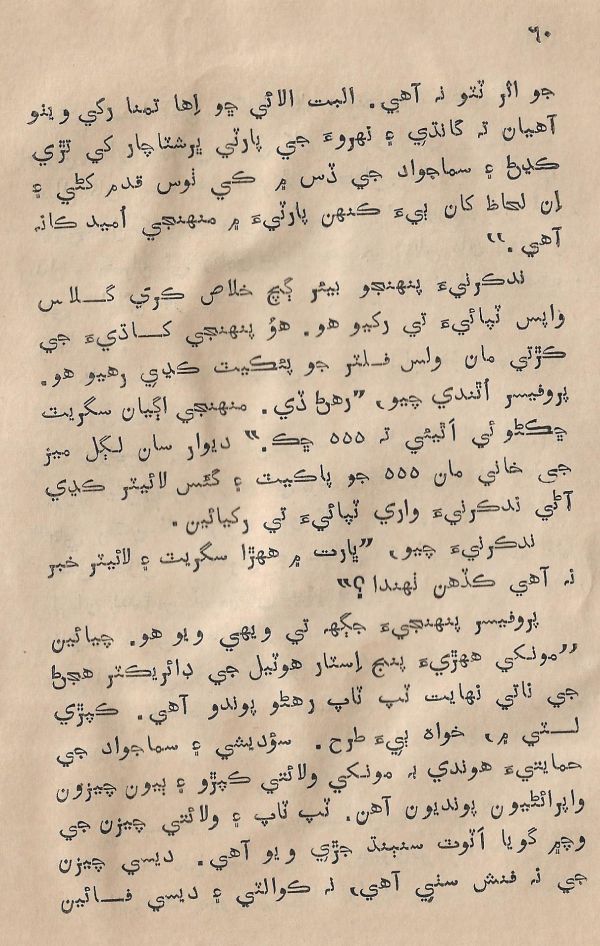 ٦٠
جو اثر ٿئو نہ آهي. البت الائي ڇو اِها تمنا رکي ويٺو
آهيان تہ گانڌي ۽ نهروءَ جي پارٽي ڀرشٽاچار کي تڙي
ڪڍڻ ۽ سماجواد جي ڏس ۾ ڪي ٺوس قدم کڻي ۽
اِن لحاظ کان ٻيءَ ڪنهن پارٽيءَ ۾ منهنجي اُميد ڪانہ
آهي.”
ندڪرنيءَ پنهنجو بيئر ڳيچ خلاص ڪري گــلاس
واپس ٽپائيءَ تي رکيو هو. هوُ پنهنجي کــاڌيءَ جي
ڪڙتي مان ولس فـلٽر جو پئڪيٽ ڪڍي رهيو هو.
پروفيسر اُٿندي چيو، ”رهڻ ڏي. منهنجي اڳيان سگريٽ
ڇڪڻو ئي اَٿيئي تہ ٥٥٥ ڇڪ.” ديوار سان لڳل ميز
جي خاني مان ٥٥٥ جو پاڪيٽ ۽ گئس لائيٽر ڪڍي
آڻي ندڪرنيءَ واري ٽپائيءَ تي رکيائين.
ندڪرنيءَ چيو، ”ڀارت ۾ ههڙا سگريٽ ۽ لائيٽر خبر
نہ آهي ڪڏهن ٺهندا؟”
پروفيسر پنهنجيءَ جڳهہ تي ويهي ويو هو. چيائين
”مونکي ههڙيءَ پنج اِسٽار هوٽيل جي ڊائريڪٽر هجڻ
جي ناتي نهايت ٽپ ٽاپ رهڻو پوندو آهي. ڪپڙي
لــٽي ۾، خواه ٻيءَ طرح. سؤديشي ۽ سماجواد جي
حمايتيءَ هوندي بہ مونکي ولائتي ڪپڙو ۽ ٻيون چيزون
واپرائڻيون پونديون آهن. ٽپ ٽاپ ۽ ولائتي چيزن جي
وچ۾ گويا اَٽوٽ سنٻنڌ جڙي ويو آهي. ديسي چيزن
جي نہ فنش سٺي آهي، نہ ڪوالٽي ۽ ديسي فــائين